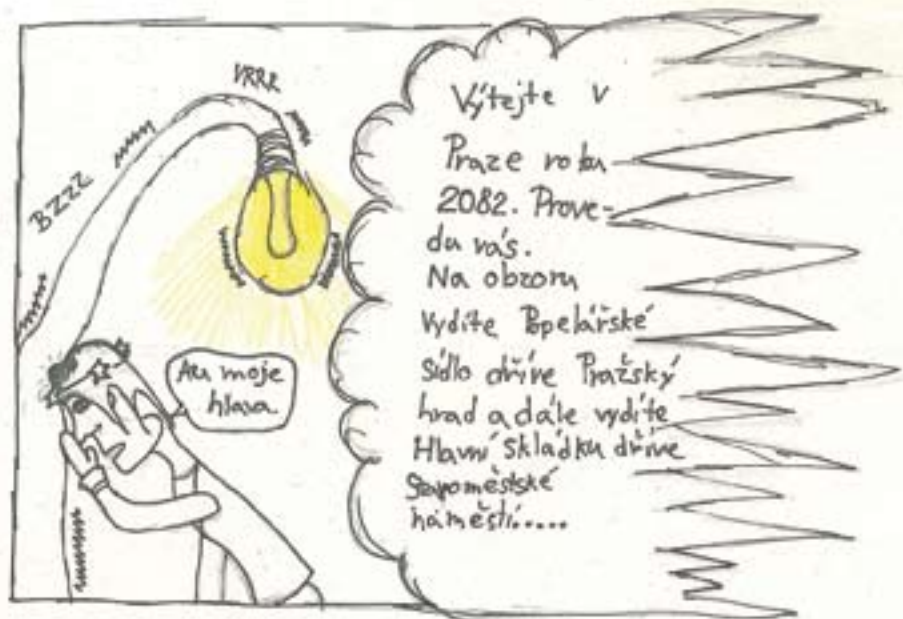 VRRR
BZZZ
Au moje
hlava.
Výtejte v
Praze roku
2082. Prove-
du vás.
Na obzoru
vydíte Popelářské
Sídlo dříve Pražský
hrad a dále vydíte
Hlavní skládku dříve
Staroměstské
náměstí.....